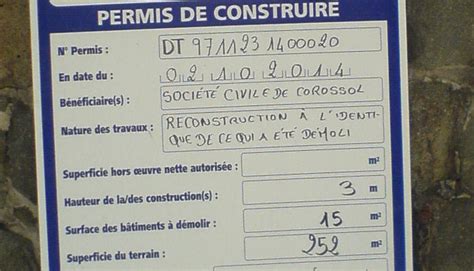 PERMIS DE CONSTRUIRE
N° Permis : DT 971123 1400020
En date du : 02 10 2014
Bénéficiaire(s) : SOCIÉTÉ CIVILE DE COROSSOL
Nature des travaux : RECONSTRUCTION À L'IDENTI-
QUE DE CE QUI A ÉTÉ DÉMOLI
Superficie hors œuvre nette autorisée : m²
Hauteur de la/des construction(s) : 3 m
Surface des bâtiments à démolir : 15 m²
Superficie du terrain : 252 m²